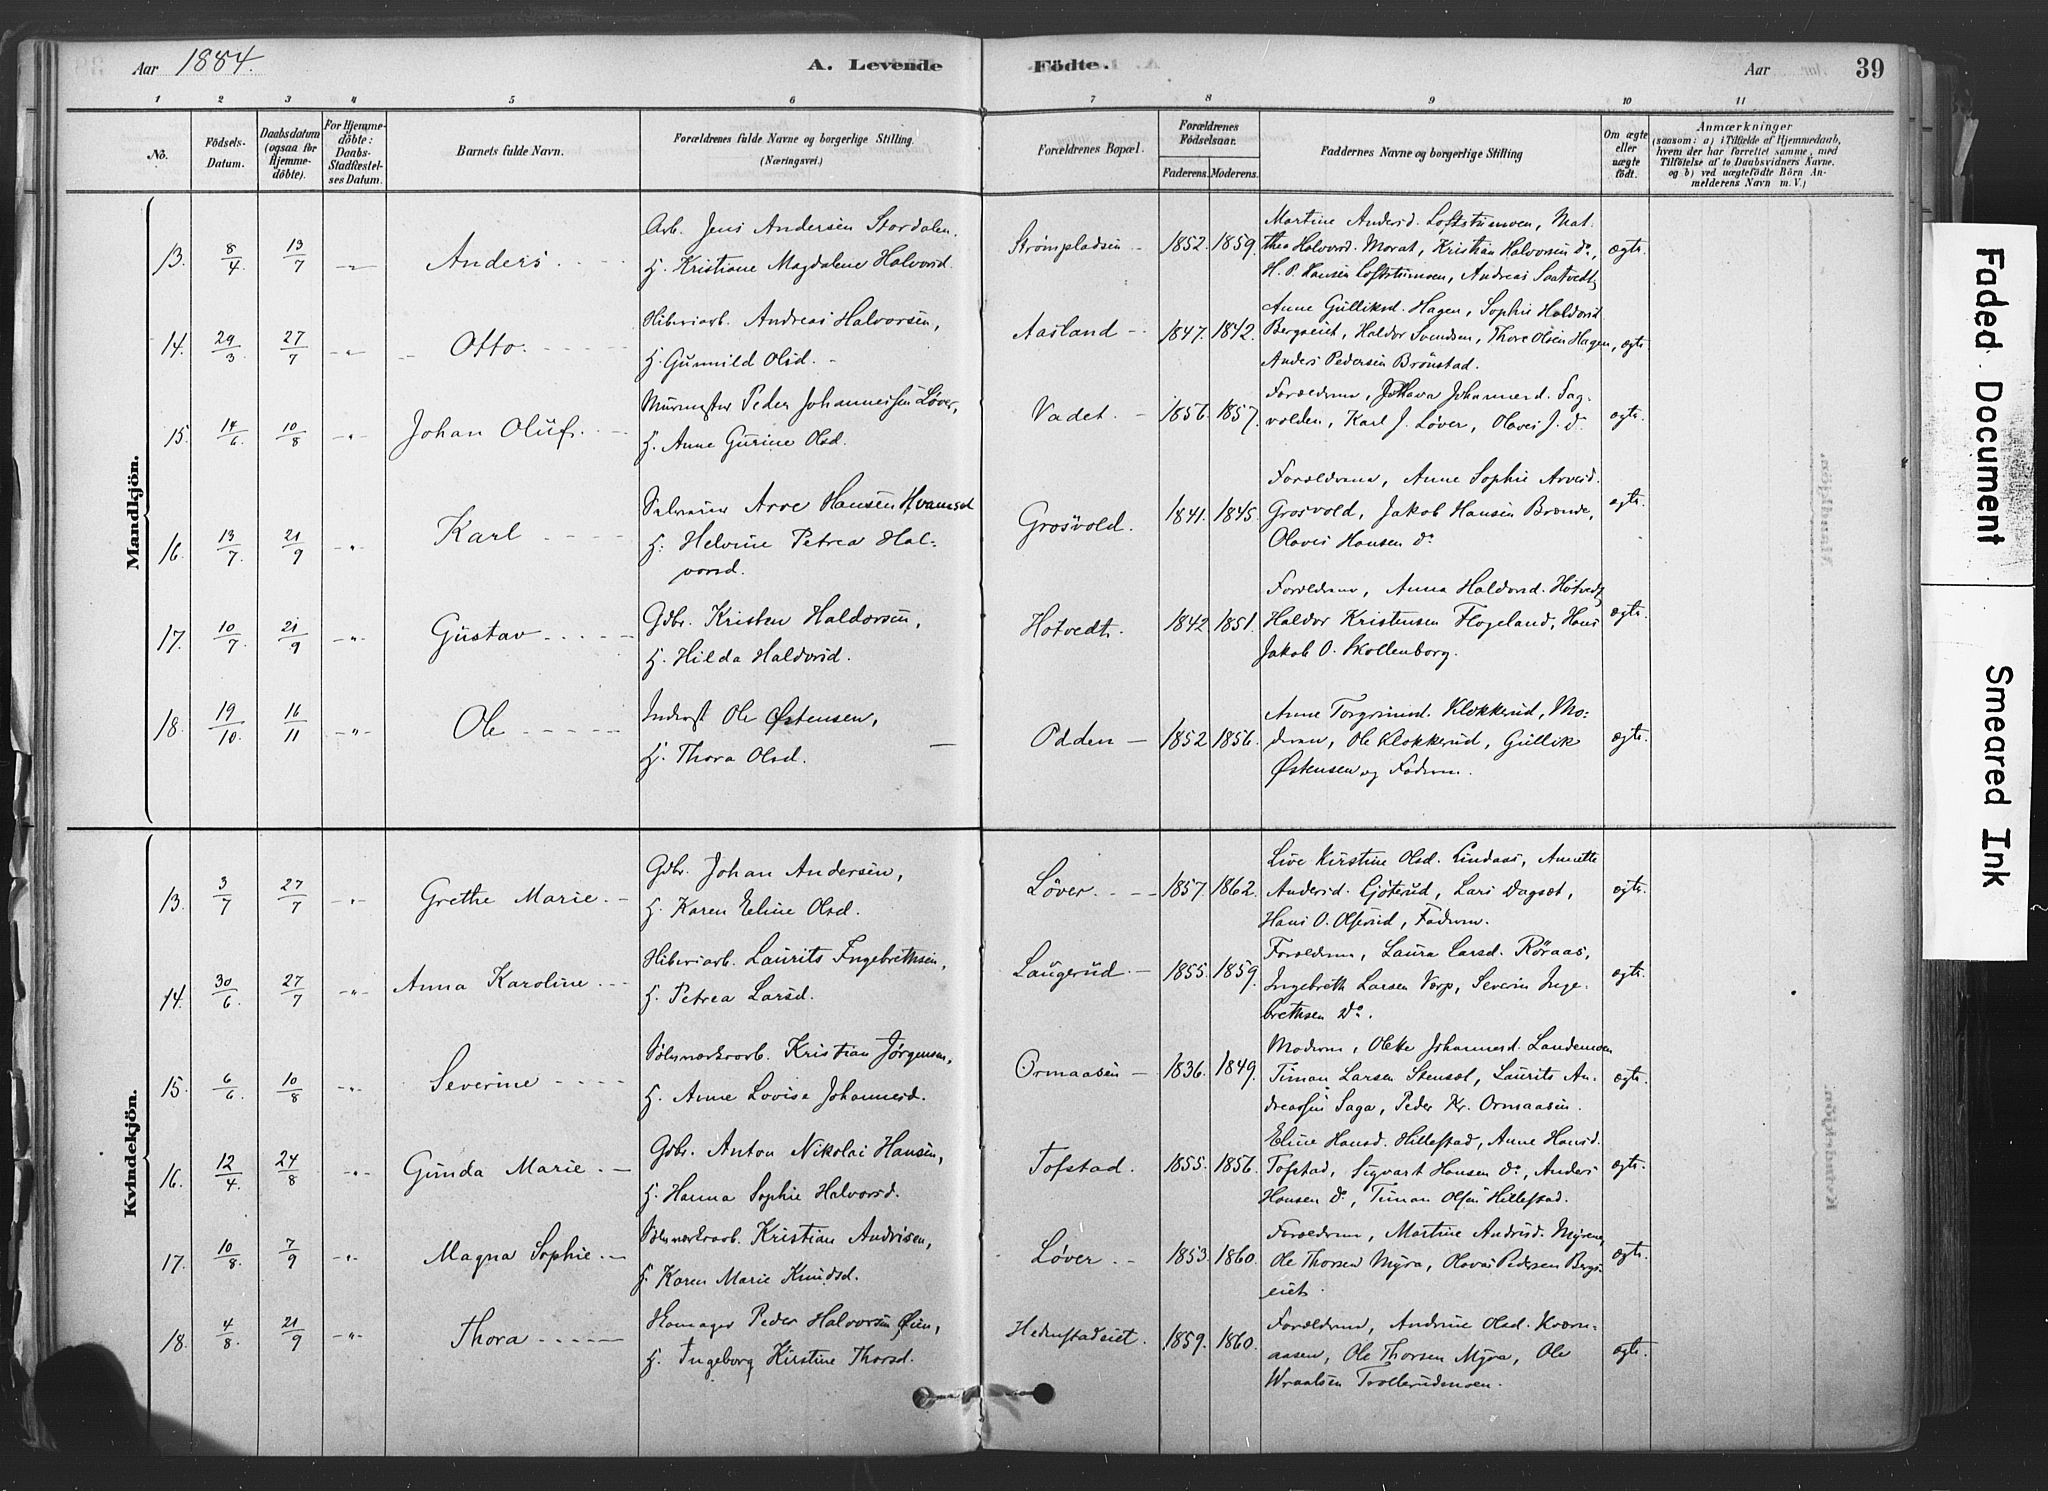 Aar 1884.
A. Levende Födte.
Aar
39
1 2 3 4 5 6 7 8 9 10 11
No.
Födsels-Datum.
Daabsdatum (ogsaa for Hjemmedöbte).
For Hjemmedöbte: Daabs-Stadfestelses Datum.
Barnets fulde Navn.
Forældrenes fulde Navne og borgerlige Stilling. (Næringsvei.)
Forældrenes Bopæl.
Forældrenes Födselsaar.
Faderens. Moderens.
Faddernes Navne og borgerlige Stilling
Om ægte eller uægte födt.
Anmærkninger
(saasom: a) i Tilfælde af Hjemmedaab, hvem der har forrettet samme, med Tilföielse af to Daabsvidners Navne. og b) ved uægtefödte Börn Anmelderens Navn m. V.)
Mandkjön.
13. 8/4 13/7 -"- Anders
Arb. Jens Andersen Stordalen.
H. Kristiane Magdalene Halvorsd.
Strømpladsen 1852. 1859.
Martine Andersd. Loftstumoen, Mat-
thea Halvorsd. Morat, Kristian Halvorsen Do,
H. P. Hansen Loftstumoen, Andreas Saatvedt
ægte.
14. 29/3 27/7 -"- Otto.
Andreas Halvorsen,
H. Gunnild Olsd.
Aasland 1847. 1842.
Anne Gulliksd. Hagen, Sophie Haldorsd.
Bergseiet, Haldor Svendsen, Thore Olsen Hagen,
Anders Pedersen Brönstad.
ægte.
15. 14/6 10/8 -"- Johan Oluf.
Murmester Peder Johannessen Løver,
H. Anne Gurine Olsd.
Vadet. 1856. 1857.
Forældrene, Johannesd. Sag-
volden, Karl J. Løver, Olaves J. Do
ægte.
16. 13/7 21/9 -"- Karl
Arve Hansen
H. Helvine Petrea Hal-
vorsd.
Grosvold. 1841. 1845.
Forældrene, Anne Sophie Arvesd.
Grosvold, Jakob Hansen
Olaves Hansen Do
ægte.
17. 10/7 21/9 -"- Gustav
Gdbr. Kristen Haldorsen,
H. Hilda Haldorsd.
Hotvedt. 1842 1851.
Forældrene, Anna Haldorsd. Hotvedt
Haldor Kristensen Flogeland, Hans
Jakob O. Skollenborg.
ægte.
18. 19/10 16/11 -"- Ole
Inderst Ole Østensen,
H. Thora Olsd.
Odden 1852 1856.
Anne Torgrimsd. Klokkerud, Mo-
deren, Ole Klokkerud, Gullik
Østensen og Faderen.
ægte.
Kvindekjön.
13. 3/7 27/7 -"- Grethe Marie.
Gdbr. Johan Andersen,
H. Karen Eline Olsd.
Løver. 1857. 1862.
Live Kirstine Olsd. Lindaas, Annette
Andersd. Gjöterud, Lars Dagsot,
Hans O. Faderen.
ægte.
14. 30/6 27/7 -"- Anna Karoline
Laurits Ingebrethsen,
H. Petrea Larsd.
Laugerud. 1855. 1859.
Forældrene, Laura Larsd. Röraas,
Ingebreth Larsen Severin Inge-
brethsen Do.
ægte.
15. 6/6 10/8 -"- Severine
Sølvværksarb. Kristian Jørgensen,
H. Anne Lovise Johannesd.
Ormaasen 1836. 1849.
Moderen, Olette Johannesd. Landemoen
Timan Larsen Stensøt, Laurits An-
dreassen Saga, Peder Kr. Ormaasen.
ægte.
16. 12/4 24/8 -"- Gunda Marie.
Gdbr. Anton Nikolai Hansen,
H. Hanna Sophie Halvorsd.
Tofstad. 1855. 1856.
Eline Hansd. Hillestad, Anne Hansd.
Tofstad, Sigvart Hansen Do, Anders
Hansen Do, Timan Olsen Hillestad.
ægte.
17. 10/8 7/9 -"- Magna Sophie.
Sølvværksarb. Kristian Andrisen,
H. Karen Marie Knudsd.
Løver. 1853. 1860.
Forældrene, Martine Andersd. Myrene,
Ole Thorsen Myra, Olaves Pedersen Bergs-
eiet.
ægte.
18. 4/8 21/9 -"- Thora
Skomager Peder Halvorsen Øien,
H. Ingeborg Kirstine Thorsd.
Hedenstadeiet. 1859. 1860.
Forældrene, Andrine Olsd. Kværn-
aasen, Ole Thorsen Myra, Ole
Wraalsen Trollerudmoen.
ægte.
Faded Document
Smeared Ink